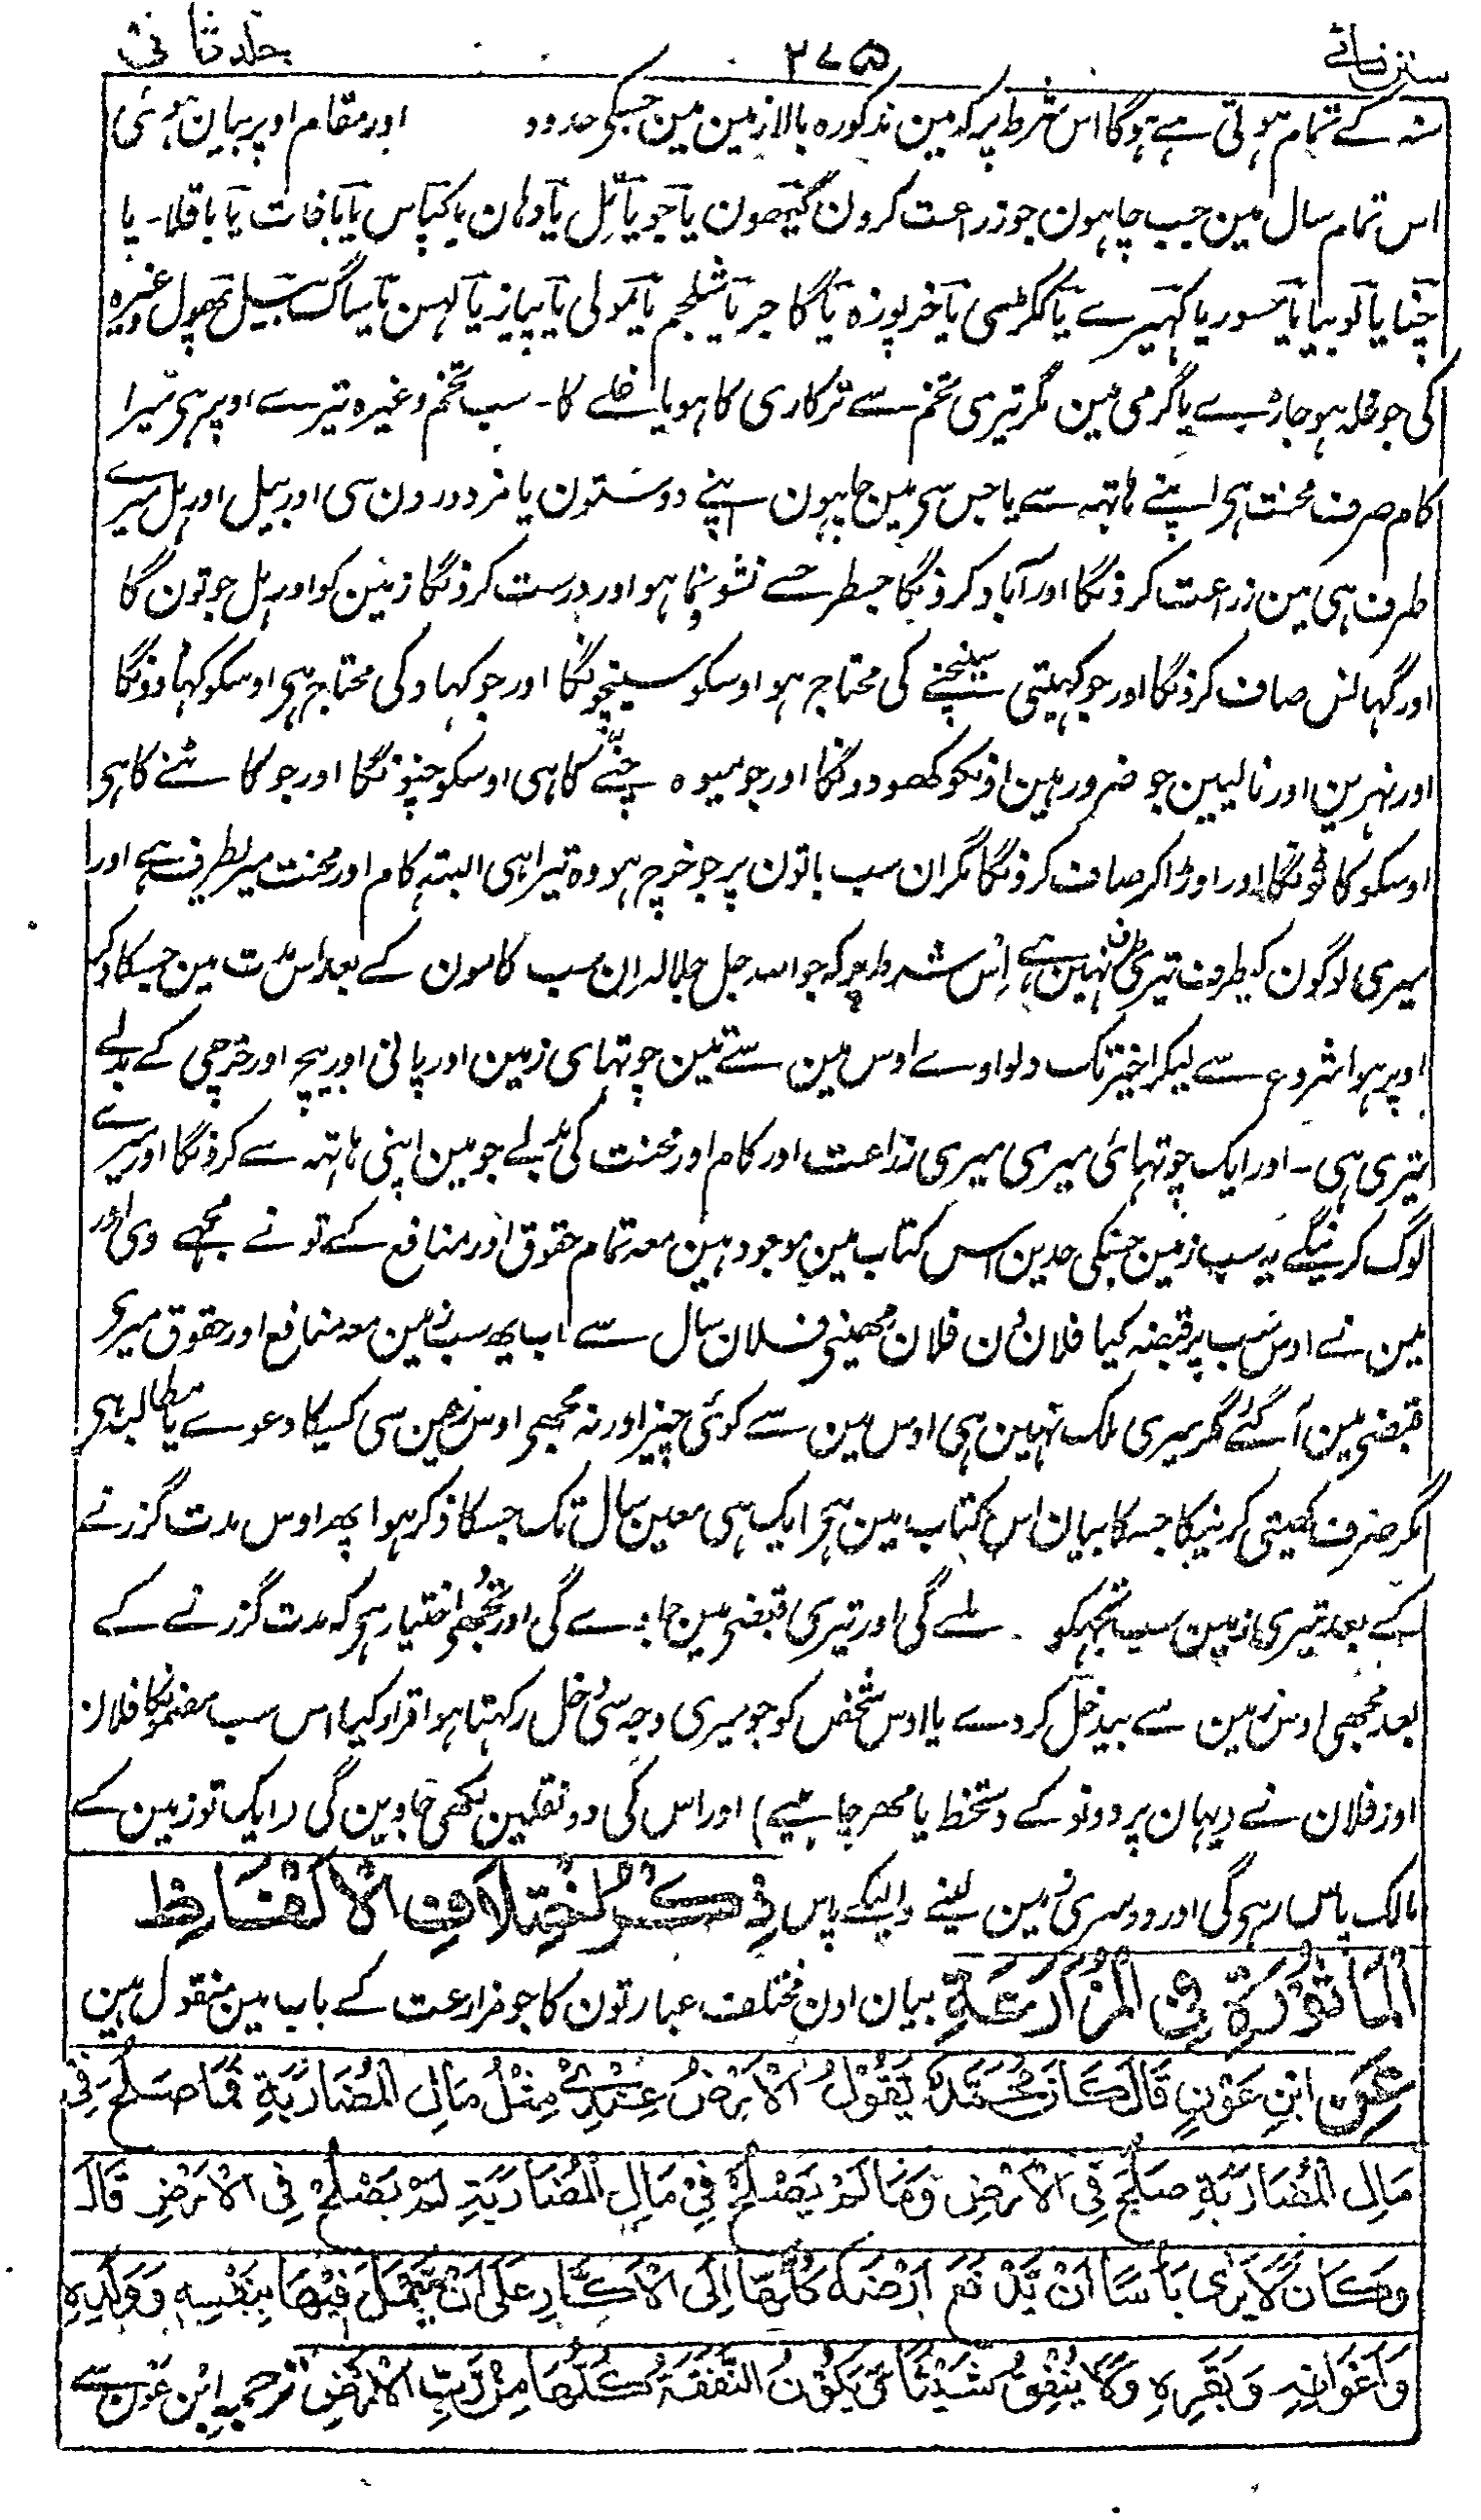 سنن نسائے ۲۷۵ جلد ثانی
سنہ کے تمام ہوتی سے ہوگا اس شرط پر کہ مین مذکورہ بالا زمین مین جسکی حدود اور مقام اوپر بیان ہوئی
اس تمام سال مین جب چاہون جو زراعت کرون گیھون یا جو یا تل یا دہان یا کپاس یا باقات یا باقلا۔ یا
چنا یا لوبیا یا مسور یا کہیرے یا ککڑی یا خربوزہ یا گاجر یا شلجم یا مولی یا پیاز یا لہسن یا ساگ یا بیل پھول وغیرہ
کی جو غلہ ہو جاڑے یا گرمی مین مگر تیری تخم سے ترکاری کا ہو یا غلے کا۔ سب تخم وغیرہ تیرے اوپر ہی میرا
کام صرف محنت ہی اپنے ہاتہہ سے یا جس سی مین چاہون اپنے دوستون یا مزدورون سی اور بیل اور ہل میرے
طرف ہی مین زراعت کرونگا اور آباد کرونگا جسطرح سے نشو و نما ہو اور درست کرونگا زمین کو اور ہل جوتون گا
اور گہانس صاف کرونگا اور جو کہیتی سینچنے کی محتاج ہو اوسکو سینچونگا اور جو کہاد کی محتاج ہی اوسکو کہاد دونگا
اور نہرین اور نالیین جو ضرور ہین اونکو کھودونگا اور جو میوہ چننے کا ہی اوسکو چنونگا اور جو کاٹنے کا ہی
اوسکو کاٹونگا اور اوڑا کر صاف کرونگا مگر ان سب باتون پر جو خرچ ہو وہ تیرا ہی البتہ کام اور محنت میریطرف ہے اور
میری لوگون کیطرف تیری طرف نہین ہے اس شرط پر کہ جو اللہ جل جلالہ ان سب کامون کے بعد اس مدت مین جسکا ذکر
اوپر ہوا شروع سے لیکر اخیر تک دلواوے اوس مین سے تین چوتہائی زمین اور پانی اور بیج اور خرچی کے بدلے
تیری ہی۔ اور ایک چوتہائی میری میری زراعت اور کام اور محنت کی بدلے جو مین اپنی ہاتہہ سے کرونگا اور میرے
لوگ کرینگے یہ سب زمین جسکی حدین اس کتاب مین موجود ہین معہ تمام حقوق اور منافع کے تو نے مجہے دی اور
مین نے اوس سب پر قبضہ کیا فلان دن فلان مھینی فلان سال سے اب یھ سب زمین معہ منافع اور حقوق میری
قبضی مین آگئے مگر میری ملک نہین ہی اوس مین سے کوئی چیز اور نہ مجھی اوس زمین سی کسیکا دعوے یا مطالبہ ہی
مگر صرف کھیتی کرنیکا جسکا بیان اس کتاب مین ہی ایک ہی معین سال تک جسکا ذکر ہوا پھر اوس مدت گزرنے
کے بعد تیری زمین سب تجہکو ملے گی اور تیری قبضی مین جاوے گی اور تجھی اختیار ہی کہ مدت گزرنے کے
بعد مجھی اوس زمین سے بیدخل کر دے یا اوس شخص کو جو میری وجہ سی دخل رکہتا ہو اقرار کیا اس سب مضمونکا فلان
اور فلان نے (یہان پر دونو کے دستخط یا مھر چاہئیے) اور اس کی دو نقلین لکھی جاوین گی (ایک تو زمین کے
مالک پاس رہی گی اور دوسری زمین لینے والیکے پاس ذِكْرُ اخْتِلَافِ الْأَلْفَاظِ
الْمَأْثُورَةِ فِي الْمُزَارَعَةِ بیان اون مختلف عبارتون کا جو مزارعت کے باب مین منقول ہین
عَنِ ابْنِ عَوْنٍ قَالَ كَانَ مُحَمَّدٌ يَقُوْلُ الْأَرْضُ عِنْدِيْ مِثْلُ مَالِ الْمُضَارَبَةِ فَمَا صَلُحَ فِي
مَالِ الْمُضَارَبَةِ صَلُحَ فِي الْأَرْضِ وَمَا لَمْ يَصْلُحْ فِيْ مَالِ الْمُضَارَبَةِ لَمْ يَصْلُحْ فِي الْأَرْضِ قَالَ
وَكَانَ لَا يَرٰى بَأْسًا أَنْ يَّدْفَعَ أَرْضَهٗ كُلَّهَا إِلَى الْأَكَّارِ عَلٰى أَنْ يَّعْمَلَ فِيْهَا بِنَفْسِهٖ وَوَلَدِهٖ
وَأَعْوَانِهٖ وَبَقَرِهٖ وَلَا يُنْفِقُ شَيْئًا وَّيَكُوْنُ النَّفَقَةُ كُلُّهَا مِنْ رَّبِّ الْأَرْضِ ترجمہ ابن عون سے